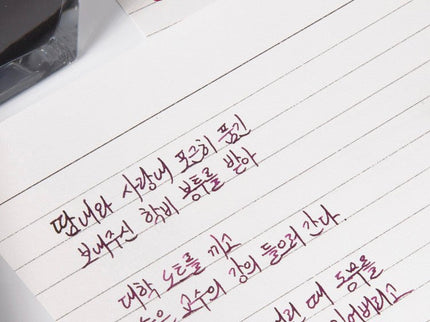 땀내와 사랑내 포근히 품긴
보내주신 학비 봉투를 받아
대학 노트를 끼고
늙은 교수의 강의 들으러 간다.
때 동무를